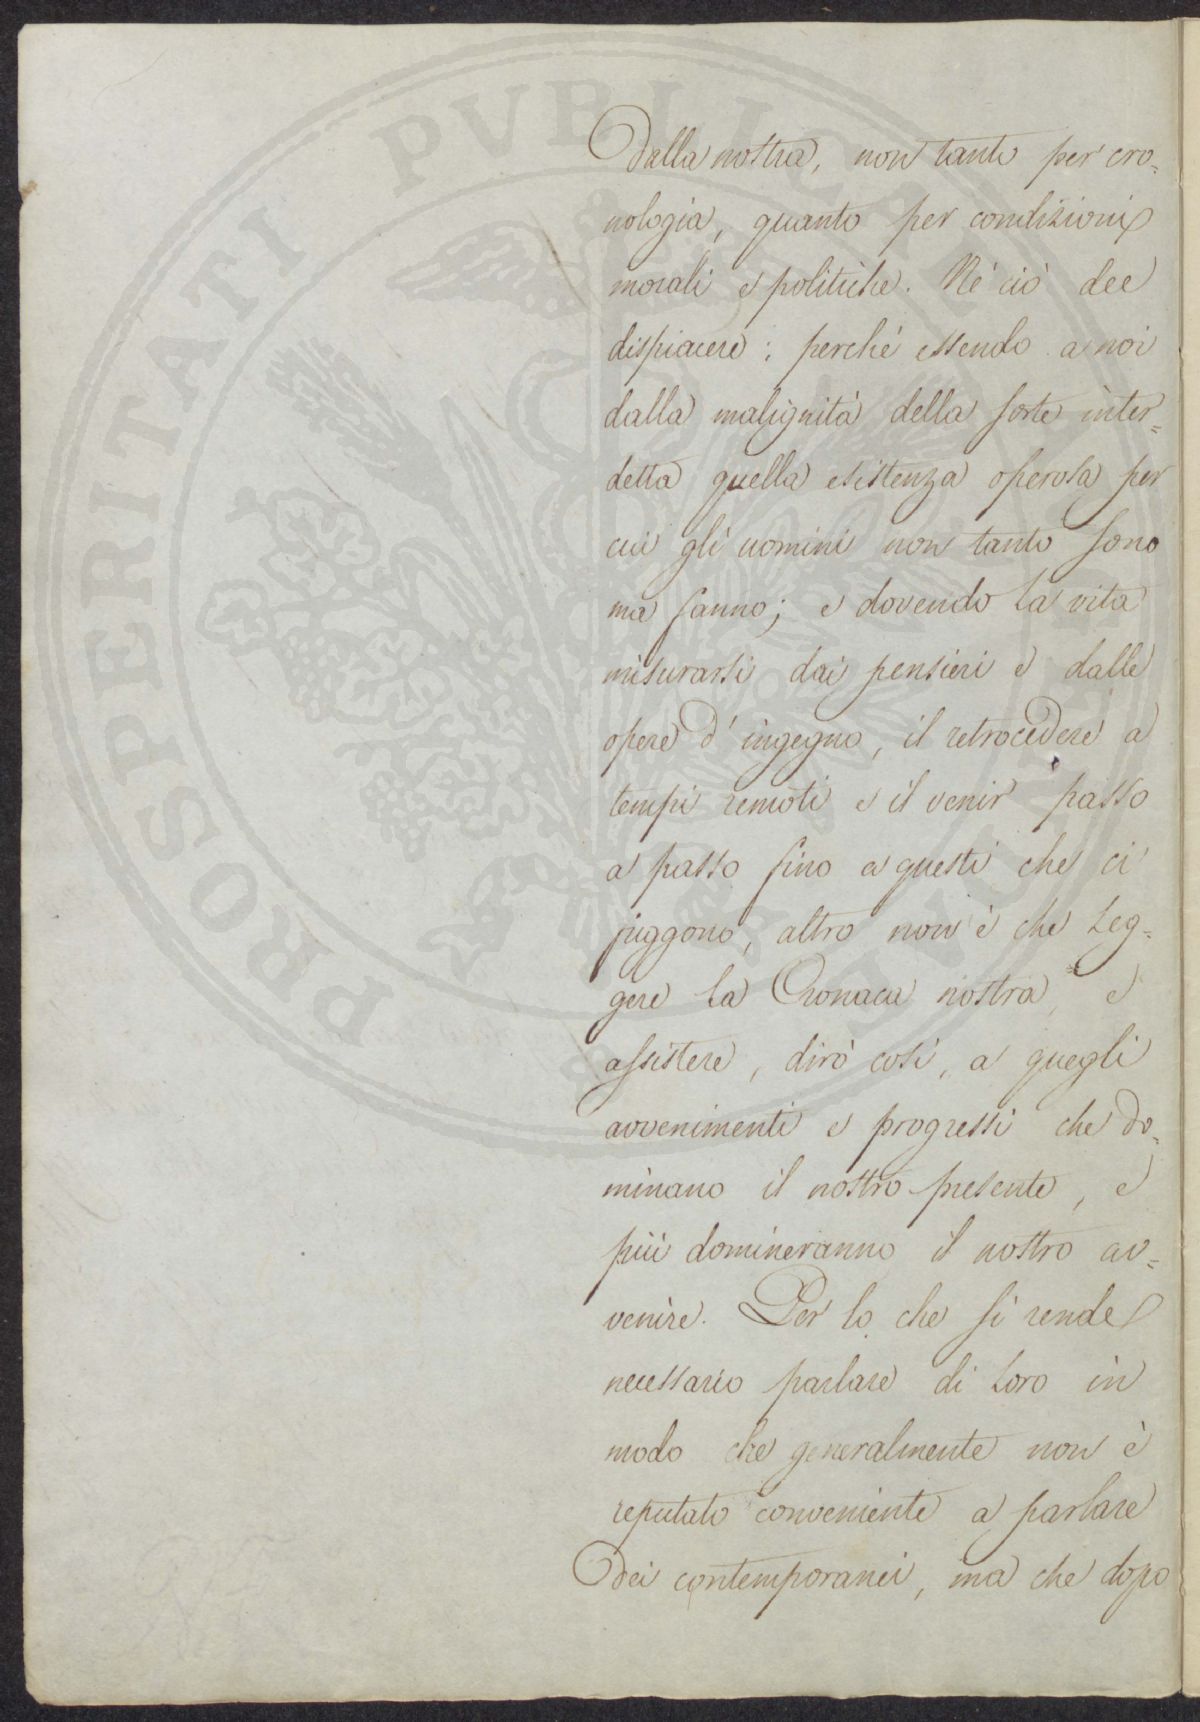 dalla nostra, non tanto per cro=
nologia, quanto per condizioni
morali e politiche. Nè ciò dee
dispiacere: perchè essendo a noi
dalla malignità della sorte inter=
detta quella esistenza operosa per
cui gli uomini non tanto sono
ma fanno; e dovendo la vita
misurarsi dai pensieri e dalle
opere d'ingegno, il retrocedere a
tempi remoti e il venir passo
a passo fino a questi che ci
fuggono, altro non è che leg=
gere la Cronaca nostra, e
assistere, dirò così, a quegli
avvenimenti e progressi che do=
minano il nostro presente, e
più domineranno il nostro av=
venire. Per lo che si rende
necessario parlare di loro in
modo che generalmente non è
reputato conveniente a parlare
dei contemporanei, ma che dopo
PROSPERITATI PVBLICAE